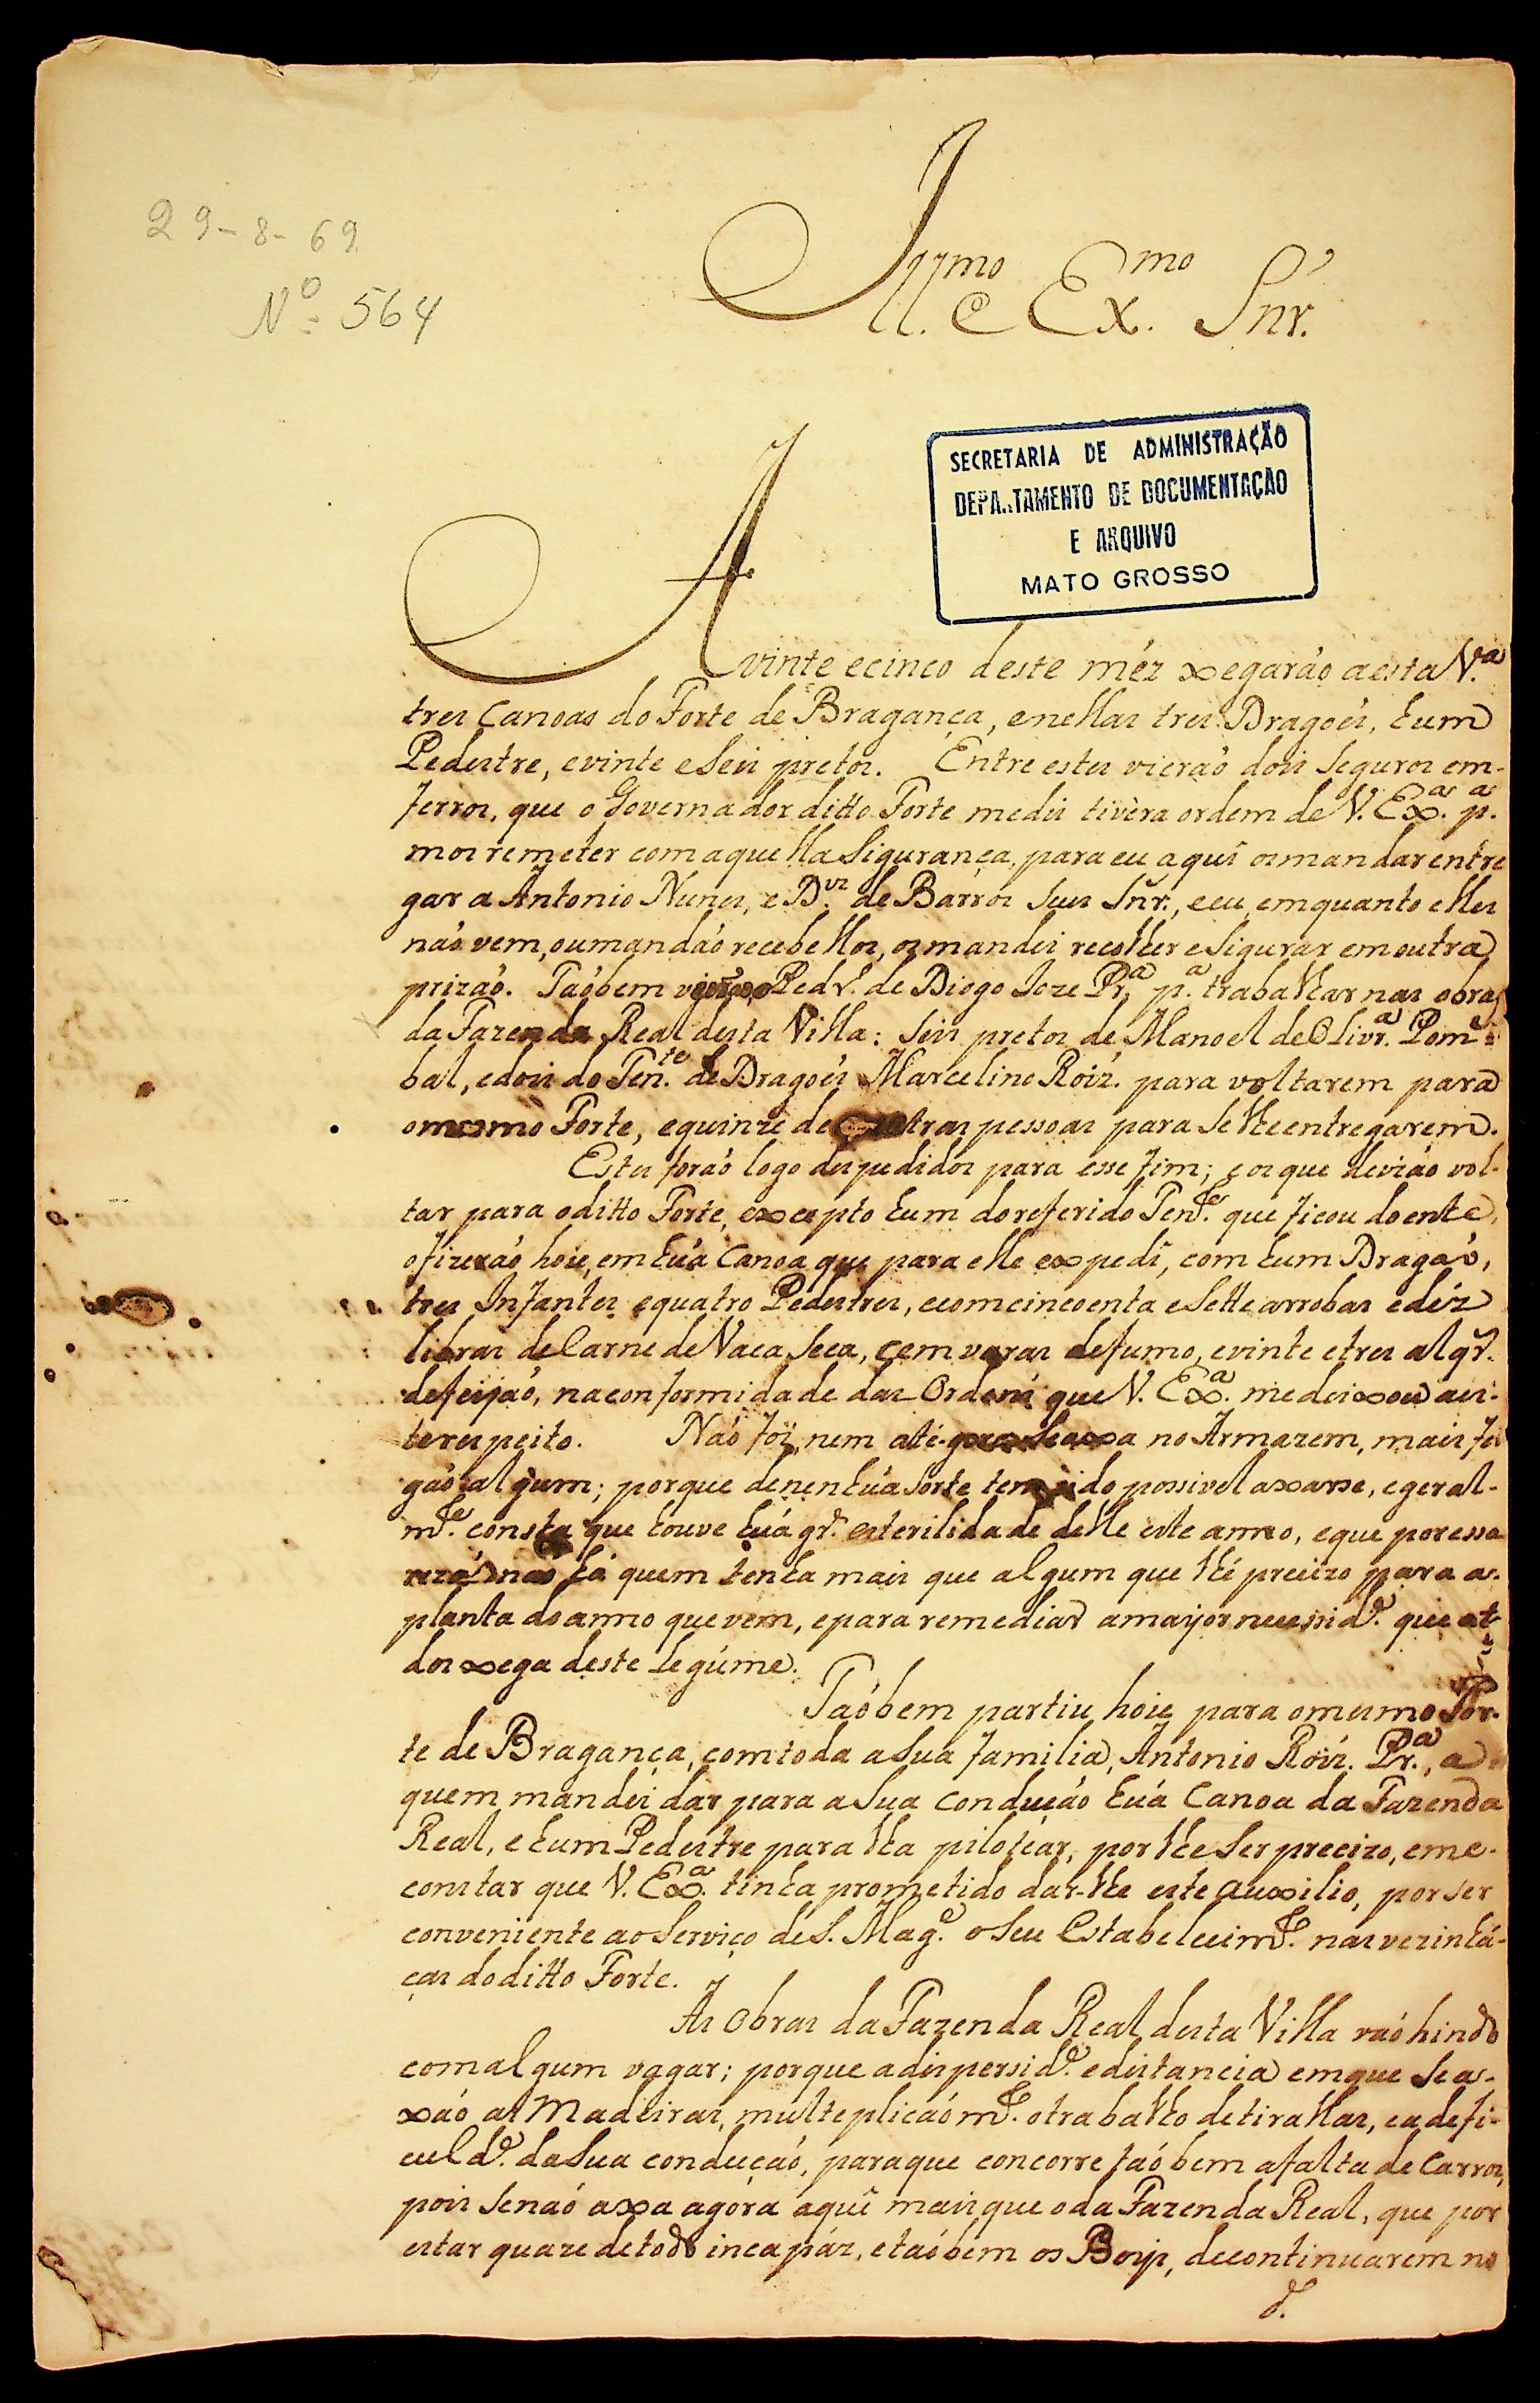 29-8-69
Nº 564
Ill.mo e Ex.mo Snr.
SECRETARIA DE ADMINISTRAÇÃO
DEPARTAMENTO DE DOCUMENTAÇÃO
E ARQUIVO
MATO GROSSO
A vinte ecinco deste méz xegaraó aesta V.ª
tres Canoas do Forte de Bragança, enellas tres Dragoẽs, hum
Pedestre, evinte eseis pretos. Entre estes vieraõ dois seguros em-
ferros, que o Governador ditto Forte mediz tivèra ordem de V. Ex.ª p.ª
mos remeter com aquella sigurança, para eu aqui osmandar entre
gar a Antonio Nunes, e D.os de Barros seus Snr., eeu, emquanto elles
naõ vem, oumandaõ recebellos, osmandei recolher esigurar em outra
prizaõ. Taõbem de Diogo Joze Pr.ª p.ª trabalhar nas obras
da Fazenda Real desta Villa: seis pretos de Manoel de Olivr.ª Pom-
bal, edois do Ten.te de Dragoẽs Marcelino Roiz. para voltarem para
omesmo Forte, equinze de outras pessoas para selheentregarem.
Estes foraõ logo despedidos para esse fim; eos que deviaõ vol-
tar para oditto Forte, excepto hum doreferido Ten.te que ficou doente,
ofizeraõ hoie, em huá Canoa que para elle expedî, com hum Dragaõ,
tres Infantes, equatro Pedestres, ecomcincoenta esette arrobas edéz
libras deCarne deVaca seca, cem varas defumo, evinte etres alqr.
defeijaõ, naconformidade das Ordens que V. Ex.ª medeixou aes-
terespeito. Naõ foi, nem até-gora seaxa no Armazem, mais fei
gaõ algum; porque denenhuá sorte tem sido possivel axarse, egeral-
m.te consta que houve huá gr.de esterilidade delle este anno, eque poressa
rezaõ naõ há quem tenha mais que algum que lhé precizo para as-
planta do anno que vem, epara remediar amayor necessid.e que at
dos xega deste legúme.
Taõbem partiu hoie para omesmo For-
te de Bragança, comtoda asua familia, Antonio Roiz. Pr.ª, a
quem mandei dar para asua Conduçaõ huá Canoa da Fazenda
Real, ehum Pedestre para lha piloteár, por lhe ser precizo, eme-
constar que V. Ex.ª tinha prometido dar-lhe este auxilio, por ser
conveniente ao serviço de S. Mag.e oseu Estabelecim.to nasvezinhá-
ças doditto Forte.
As Obras da Fazenda Real desta Villa vaõ hindo
comalgum vagar; porque adispersid.e edistancia emque seas-
xaõ as Madeiras, multeplicaõ m.to otrabalho detirallas, eadefi-
culd.e dasua conduçaõ, paraque concorre taõbem afalta de Carros,
pois senaõ axa agora aquî maisque oda Fazenda Real, que por
estar quaze detodo incapáz, etaõbem os Boys, decontinuarem no
d.